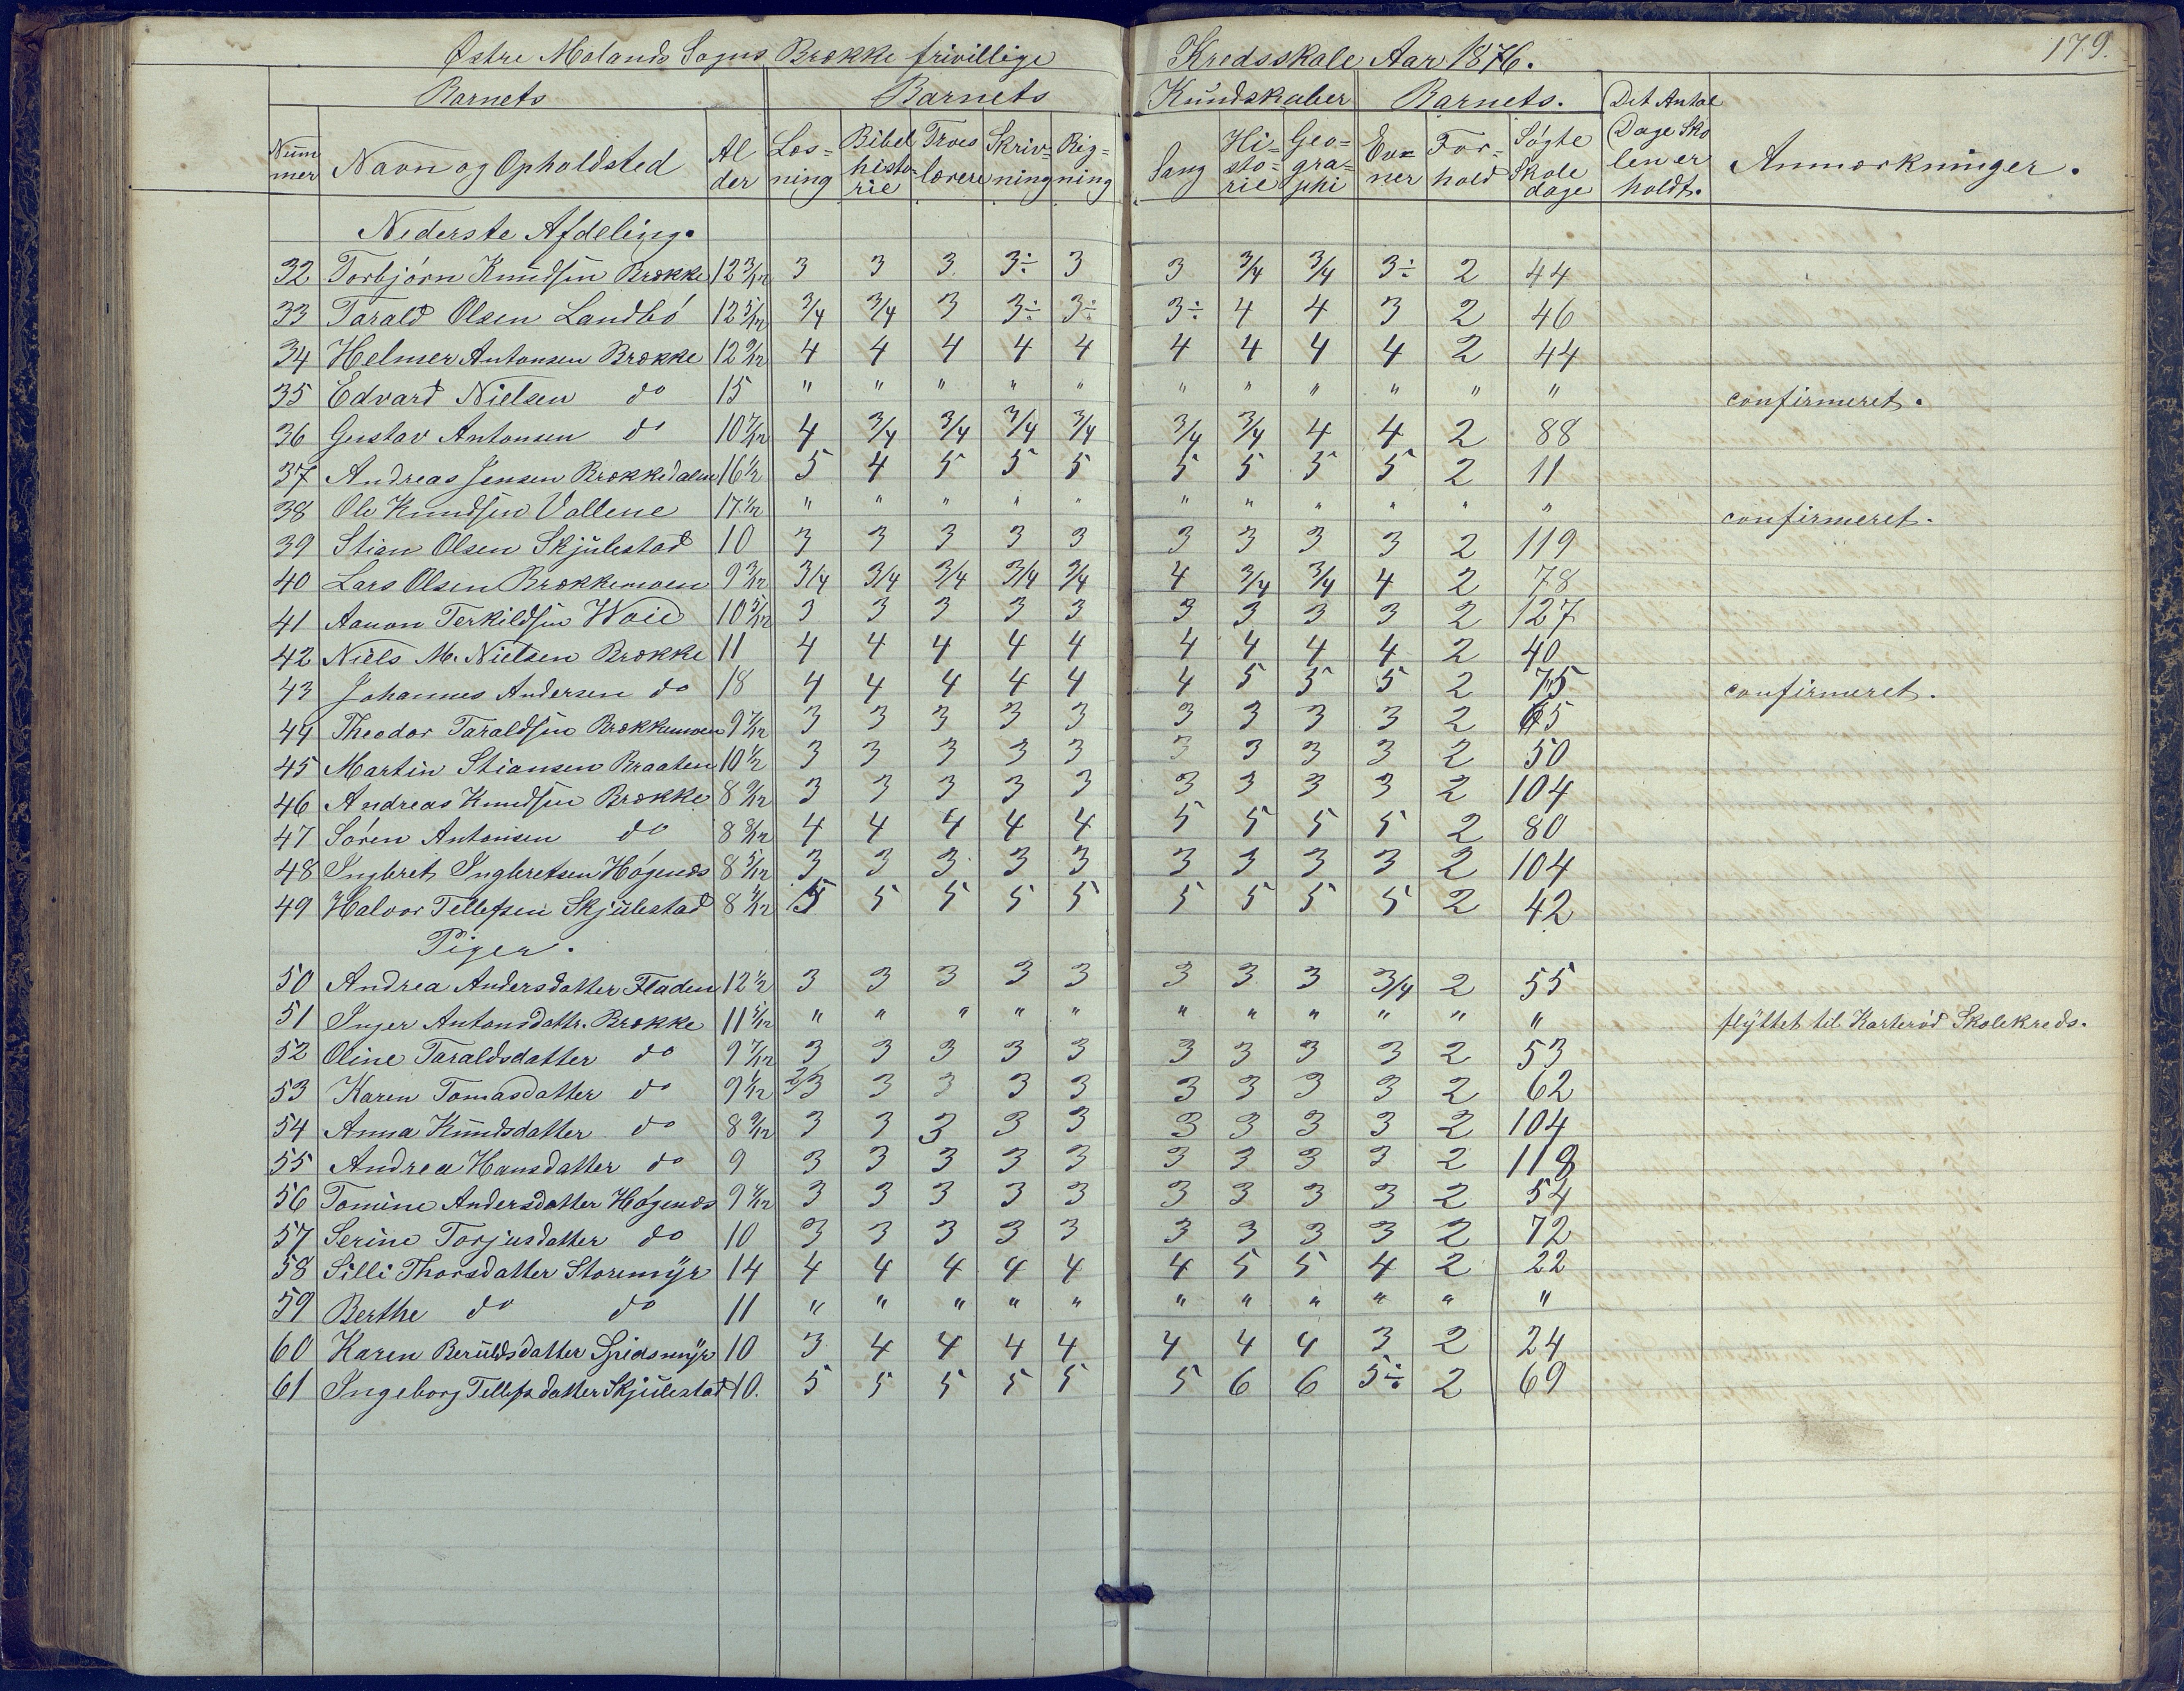 Østre Molands Sogns Brække frivillige Kredsskole Aar 1876. 179.
Barnets Barnets Kundskaber Barnets. Det Antal Dage Skolen er holdt.
Nummer Navn og Opholdsted Alder Læsning Bibelhistorie Troeslære Skrivning Rigning Sang Historie Geographi Evner Forhold Søgte Skoledage Anmærkninger.
Nederste Afdeling.
32 Torbjörn Knudsen Brække 12 3/12 3 3 3 3÷ 3 3 3/4 3/4 3÷ 2 44
33 Tarald Olsen Landbö 12 5/12 3/4 3/4 3 3÷ 3÷ 3÷ 4 4 3 2 46
34 Helmer Antonsen Brække 12 9/12 4 4 4 4 4 4 4 4 4 2 44
35 Edvard Nielsen do 15 " " " " " " " " " " " confirmeret.
36 Gustav Antonsen do 10 7/12 4 3/4 3/4 3/4 3/4 3/4 3/4 4 4 2 88
37 Andreas Jensen Brækkedalen 16 1/2 5 4 5 5 5 5 5 5 5 2 11
38 Ole Knudsen Vallene 17 1/2 " " " " " " " " " " " confirmeret.
39 Stian Olsen Skjulestad 10 3 3 3 3 3 3 3 3 3 2 119
40 Lars Olsen Brækkemoen 9 3/12 3/4 3/4 3/4 3/4 3/4 4 3/4 3/4 4 2 78
41 Aanon Terkildsen Woie 10 5/12 3 3 3 3 3 3 3 3 3 2 127
42 Niels M. Nielsen Brække 11 4 4 4 4 4 4 4 4 4 2 40
43 Johannes Andersen do 18 4 4 4 4 4 4 5 5 5 2 75 confirmeret.
44 Theodor Taraldsen Brækkemoen 9 7/12 3 3 3 3 3 3 3 3 3 2 65
45 Martin Stiansen Braaten 10 1/2 3 3 3 3 3 3 3 3 3 2 50
46 Andreas Knudsen Brække 8 9/12 3 3 3 3 3 3 3 3 3 2 104
47 Sören Antonsen do 8 8/12 4 4 4 4 4 5 5 5 5 2 80
48 Ingbret Ingbretsen Högenæs 8 5/12 3 3 3 3 3 3 3 3 3 2 104
49 Halvor Tellefsen Skjulestad 8 4/12 5 5 5 5 5 5 5 5 5 2 42
Piger.
50 Andrea Andersdatter Fladen 12 1/2 3 3 3 3 3 3 3 3 3/4 2 55
51 Inger Antonsdattr. Brække 11 5/12 " " " " " " " " " " " flyttet til Karterød Skolekreds.
52 Oline Taraldsdatter do 9 7/12 3 3 3 3 3 3 3 3 3 2 53
53 Karen Tomasdatter do 9 1/12 2/3 3 3 3 3 3 3 3 3 2 62
54 Anna Knudsdatter do 8 9/12 3 3 3 3 3 3 3 3 3 2 104
55 Andrea Hansdatter do 9 3 3 3 3 3 3 3 3 3 2 118
56 Tomine Andersdatter Högenæs 9 4/12 3 3 3 3 3 3 3 3 3 2 54
57 Serine Torjusdatter do 10 3 3 3 3 3 3 3 3 3 2 72
58 Silli Thorsdatter Storemÿr 14 4 4 4 4 4 4 5 5 4 2 22
59 Berthe do do 11 " " " " " " " " " " "
60 Karen Beruldsdatter Spidsmÿr 10 3 4 4 4 4 4 4 4 3 2 24
61 Ingeborg Tellefsdatter Skjulestad 10. 5 5 5 5 5 5 6 6 5÷ 2 69